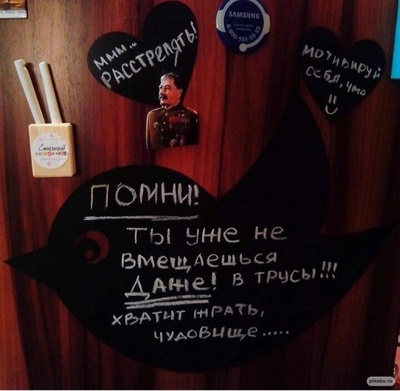 МММ...
РАССТРЕЛЯТЬ!
SAMSUNG
МОТИВИРУЙ
СЕБЯ, ЧМО
ПОМНИ!
ТЫ УЖЕ НЕ
ВМЕЩАЕШЬСЯ
ДАЖЕ! В ТРУСЫ!!!
ХВАТИТ ЖРАТЬ,
ЧУДОВИЩЕ.....
pikabu.ru